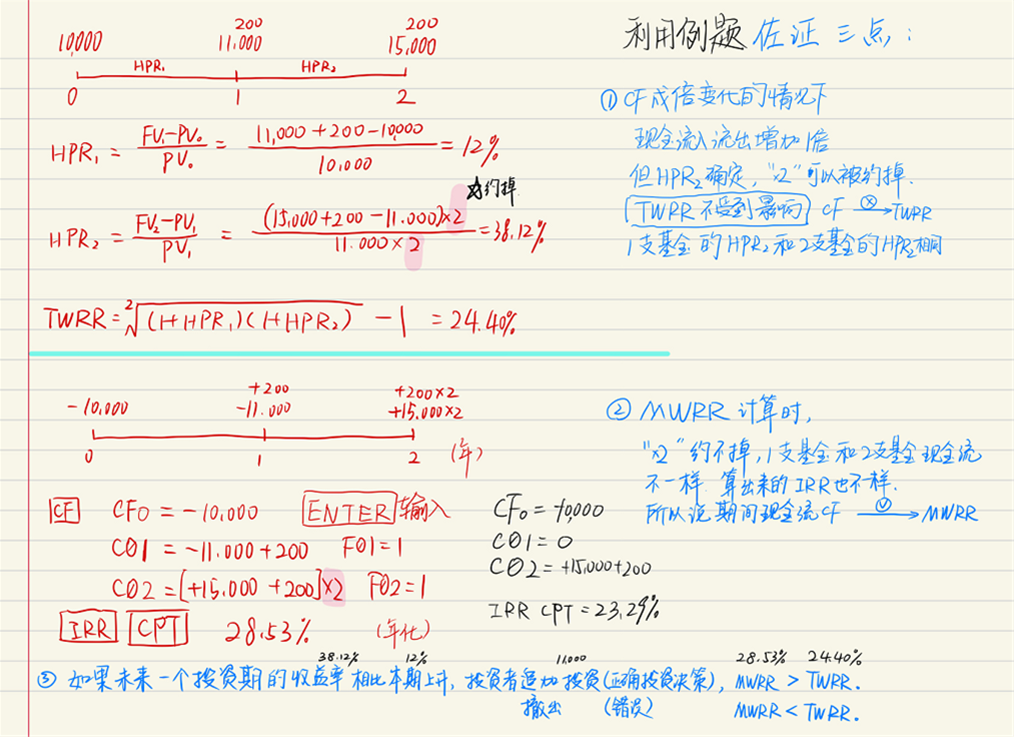 200 200
10,000 11.000 15,000
HPR₁ HPR₂
0 1 2
HPR₁ = (FV₁-PV₀)/PV₀ = (11,000+200-10,000)/10,000 = 12%
约掉
HPR₂ = (FV₂-PV₁)/PV₁ = (15,000+200-11.000)×2/11.000×2 = 38.12%
TWRR = ²√(1+HPR₁)(1+HPR₂) -1 = 24.40%
利用例题 佐证 三点:
① CF成倍变化的情况下
现金流入流出增加1倍
但HPR₂确定, "×2"可以被约掉.
TWRR不受到影响 CF ⓧ→ TWRR
1支基金的HPR₂和2支基金的HPR₂相同
+200 +200×2
-10,000 -11.000 +15,000×2
0 1 2 (年)
CF CF0 = -10,000 ENTER 输入
C01 = -11.000+200 F01=1
C02 = [+15.000+200]×2 F02=1
IRR CPT 28.53% (年化)
CF₀ = -10,000
C01 = 0
C02 = +15,000+200
IRR CPT = 23.29%
② MWRR 计算时,
"×2"约不掉, 1支基金和2支基金现金流
不一样. 算出来的IRR也不一样.
所以说期间现金流CF Ⓥ→ MWRR
38.12% 12% 11,000 28.53% 24.40%
③ 如果未来一个投资期的收益率相比本期上升, 投资者追加投资(正确投资决策), MWRR > TWRR.
撤出 (错误) MWRR < TWRR.